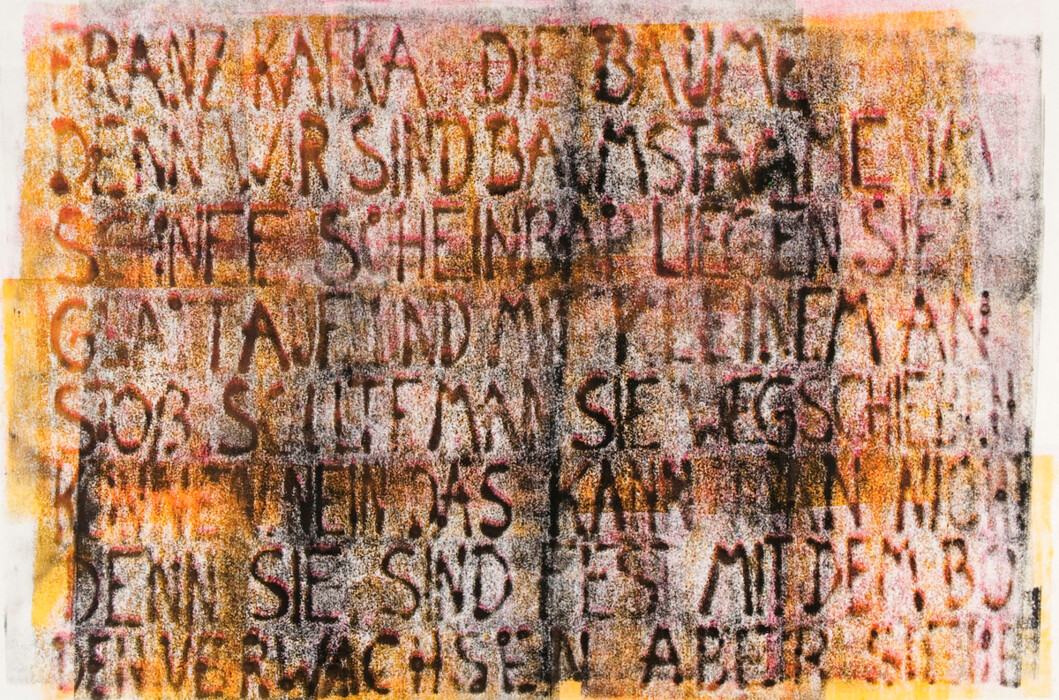 FRANZ KAFKA DIE BÄUME
DENN WIR SIND BAUMSTÄMME IM
SCHNEE SCHEINBAR LIEGEN SIE
GLATT AUF UND MIT KLEINEM AN
STOß SOLLTE MAN SIE WEGSCHIEBEN
KÖNNEN NEIN DAS KANN MAN NICHT
DENN SIE SIND FEST MIT DEM BO
DEN VERWACHSEN ABER SIEHE